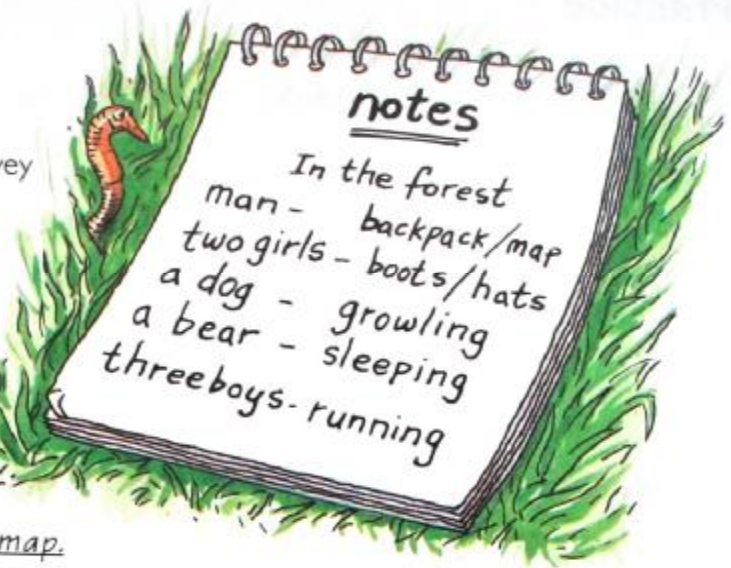 vey
notes
In the forest
man - backpack/map
two girls - boots/hats
a dog - growling
a bear - sleeping
three boys - running
map.